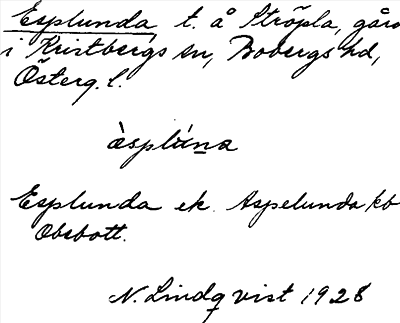 Esplunda t. å Ströpla, gård
i Kristbergs sn, Bobergs hd,
Österg. l.
àsplúna
Esplunda ek. Aspelunda kb
Obsbott.
N. Lindqvist 1928